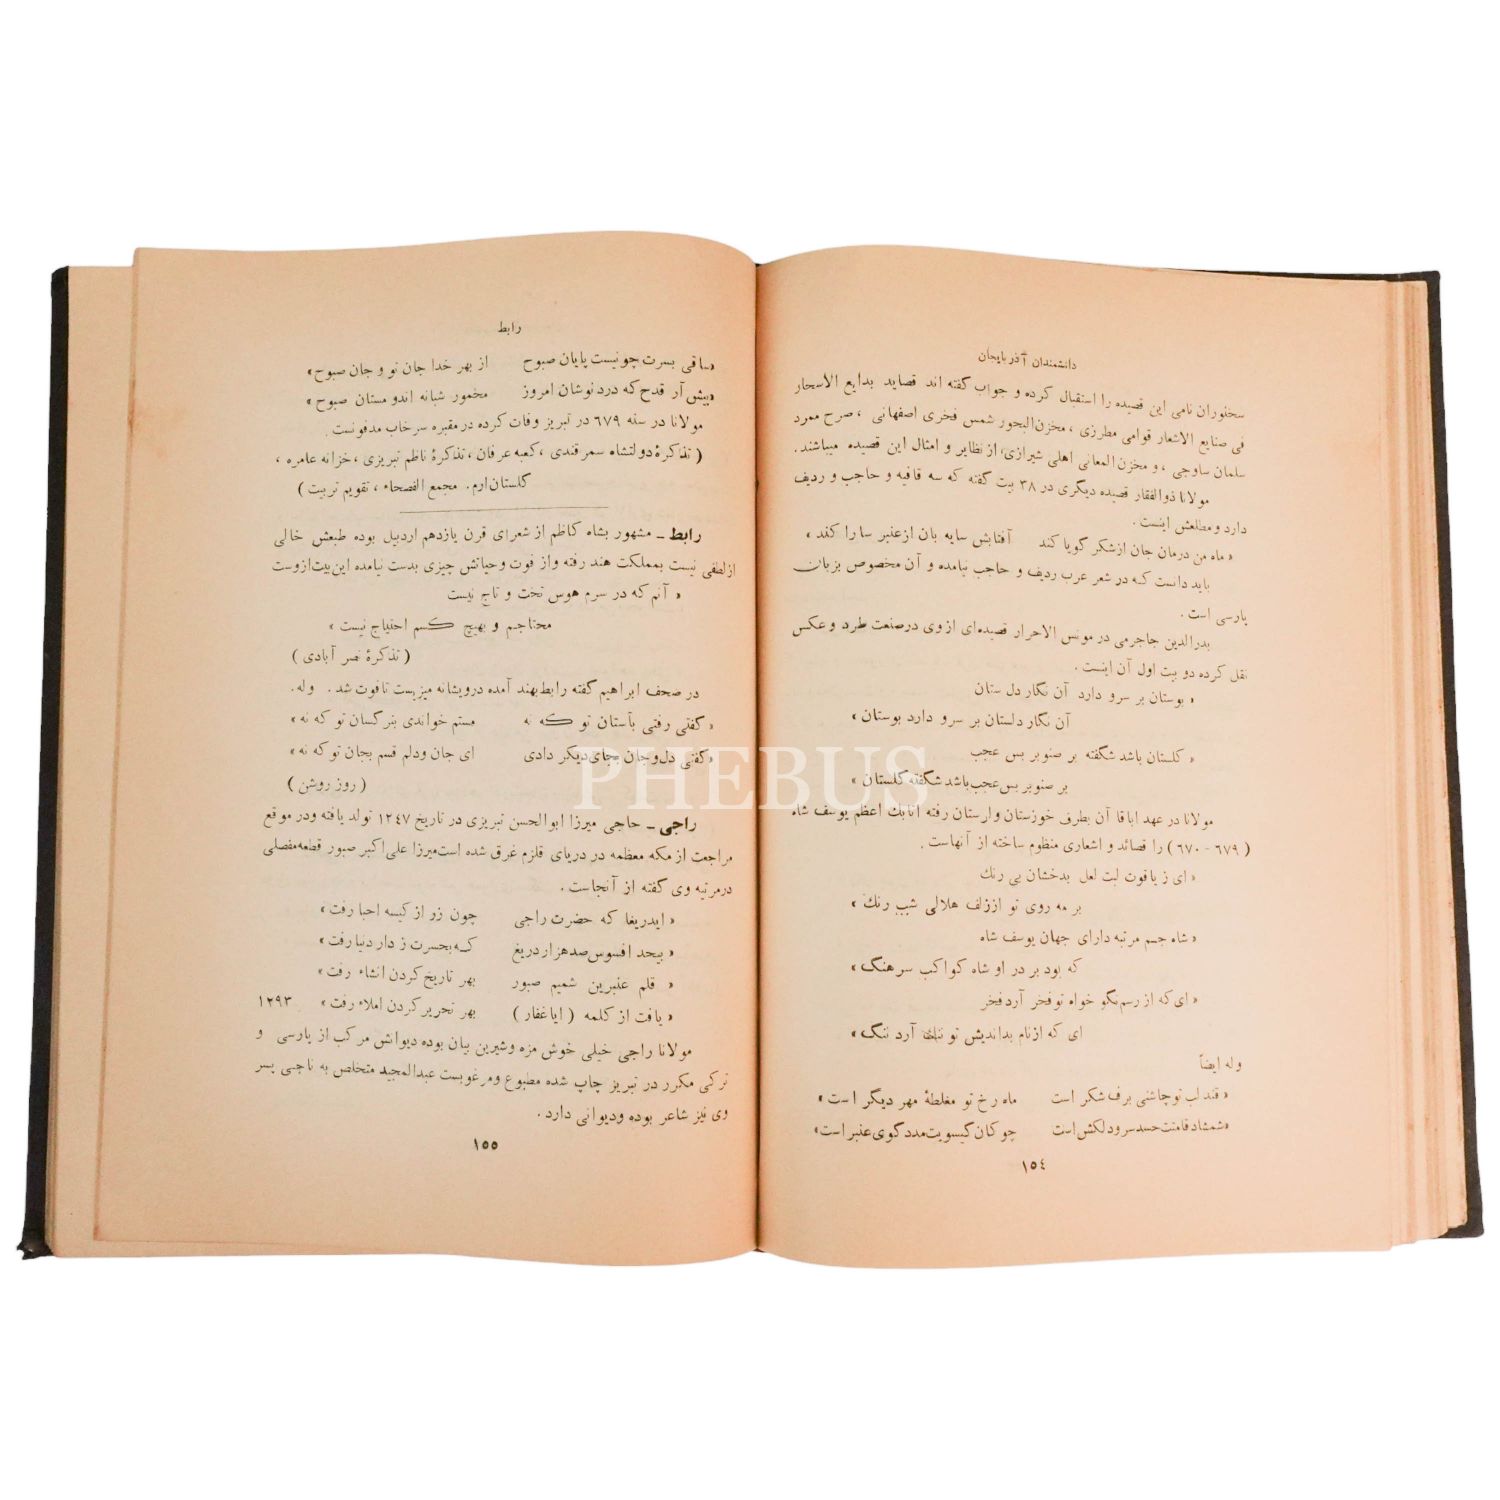 دانشمندان آذربایجان
سخنوران نامی این قصیده را استقبال کرده و جواب گفته اند قصاید بدایع الاسحار
فی صنایع الاشعار قوامی مطرزی ، مخزن‌البحور شمس فخری اصفهانی ، صرح ممرد
سلمان ساوجی ، و مخزن المعانی اهلی شیرازی، از نظایر و امثال این قصیده میباشند.
مولانا ذوالفقار قصیده دیگری در ۳۸ بیت گفته که سه قافیه و حاجب و ردیف
دارد و مطلعش اینست.
« ماه من درمان جان از شکر گویا کند آفتابش سایه بان از عنبر سارا کند ،
باید دانست که در شعر عرب ردیف و حاجب نیامده و آن مخصوص بزبان
پارسی است .
بدرالدین جاجرمی در مونس الاحرار قصیده‌ای از وی در صنعت طرد و عکس
نقل کرده دو بیت اول آن اینست .
« بوستان بر سرو دارد آن نگار دل ستان
آن نگار دلستان بر سرو دارد بوستان »
« گلستان باشد شگفته بر صنوبر بس عجب
بر صنوبر بس عجب باشد شگفته گلستان »
مولانا در عهد اباقا آن بطرف خوزستان و لرستان رفته اتابك اعظم یوسف شاه
( ۶۷۹ - ۶۷۰ ) را قصائد و اشعاری منظوم ساخته از آنهاست .
« ای ز یاقوت لبت لعل بدخشان بی رنك
بر مه روی تو از زلف هلالی شبب رنك »
« شاه جم مرتبه دارای جهان یوسف شاه
که بود بر در او شاه کواکب سرهنگ »
« ای که از رسم نگو خواه تو فخر آرد فخر
ای که از نام بداندیش تو ننگ آرد ننگ »
وله ایضاً
« قند لب تو چاشنی برف شکر است ماه رخ تو مغلطهٔ مهر دیگر است »
«شمشاد قامتت حسد سرو دلکش است چوکان گیسویت مددگوی عنبر است»
۱۵٤
رابط
«ساقی بسرت چونیست پایان صبوح از بهر خدا جان تو و جان صبوح»
«پیش آر قدح که درد نوشان امروز مخمور شبانه اند و مستان صبوح »
مولانا در سنه ۶۷۹ در تبریز وفات کرده در مقبره سرخاب مدفونست.
( تذکرهٔ دولتشاه سمرقندی ، کعبه عرفان ، تذکرهٔ ناظم تبریزی ، خزانه عامره ،
گلستان ارم. مجمع الفصحاء ، تقویم تربیت )
رابط ـ مشهور بشاه کاظم از شعرای قرن یازدهم اردبیل بوده طبعش خالی
از لطفی نیست بمملکت هند رفته و از فوت و حیاتش چیزی بدست نیامده این بیت از وست
« آنم که در سرم هوس تخت و تاج نیست
محتاجم و بهیچ کسم احتیاج نیست »
( تذکرهٔ نصر آبادی )
در صحف ابراهیم گفته رابط بهند آمده درویشانه میزیست تا فوت شد . وله.
« گفتی رفتی بآستان تو که نه مستم خواندی بنرگسان تو که نه »
«گفتی دل و جان بجای دیگر دادی ای جان و دلم قسم بجان تو که نه »
( روز روشن )
راجی ـ حاجی میرزا ابوالحسن تبریزی در تاریخ ۱۲٤۷ تولد یافته و در موقع
مراجعت از مکه معظمه در دریای قلزم غرق شده است میرزا علی اکبر صبور قطعه مفصلی
در مرثیه وی گفته از آنجاست .
« ایدریغا که حضرت راجی چون زر از کیسه احبا رفت »
« بیحد افسوس صد هزار دریغ که بحسرت ز دار دنیا رفت »
« قلم عنبرین شمیم صبور بهر تاریخ کردن انشاء رفت »
« یافت از کلمه ( ایا غفار ) بهر تحریر کردن املاء رفت » ۱۲۹۳
مولانا راجی خیلی خوش مزه و شیرین بیان بوده دیوانش مرکب از پارسی و
ترکی مکرر در تبریز چاپ شده مطبوع و مرغوبست عبدالمجید متخلص به ناجی پسر
وی نیز شاعر بوده و دیوانی دارد .
۱۵۵
PHEBUS